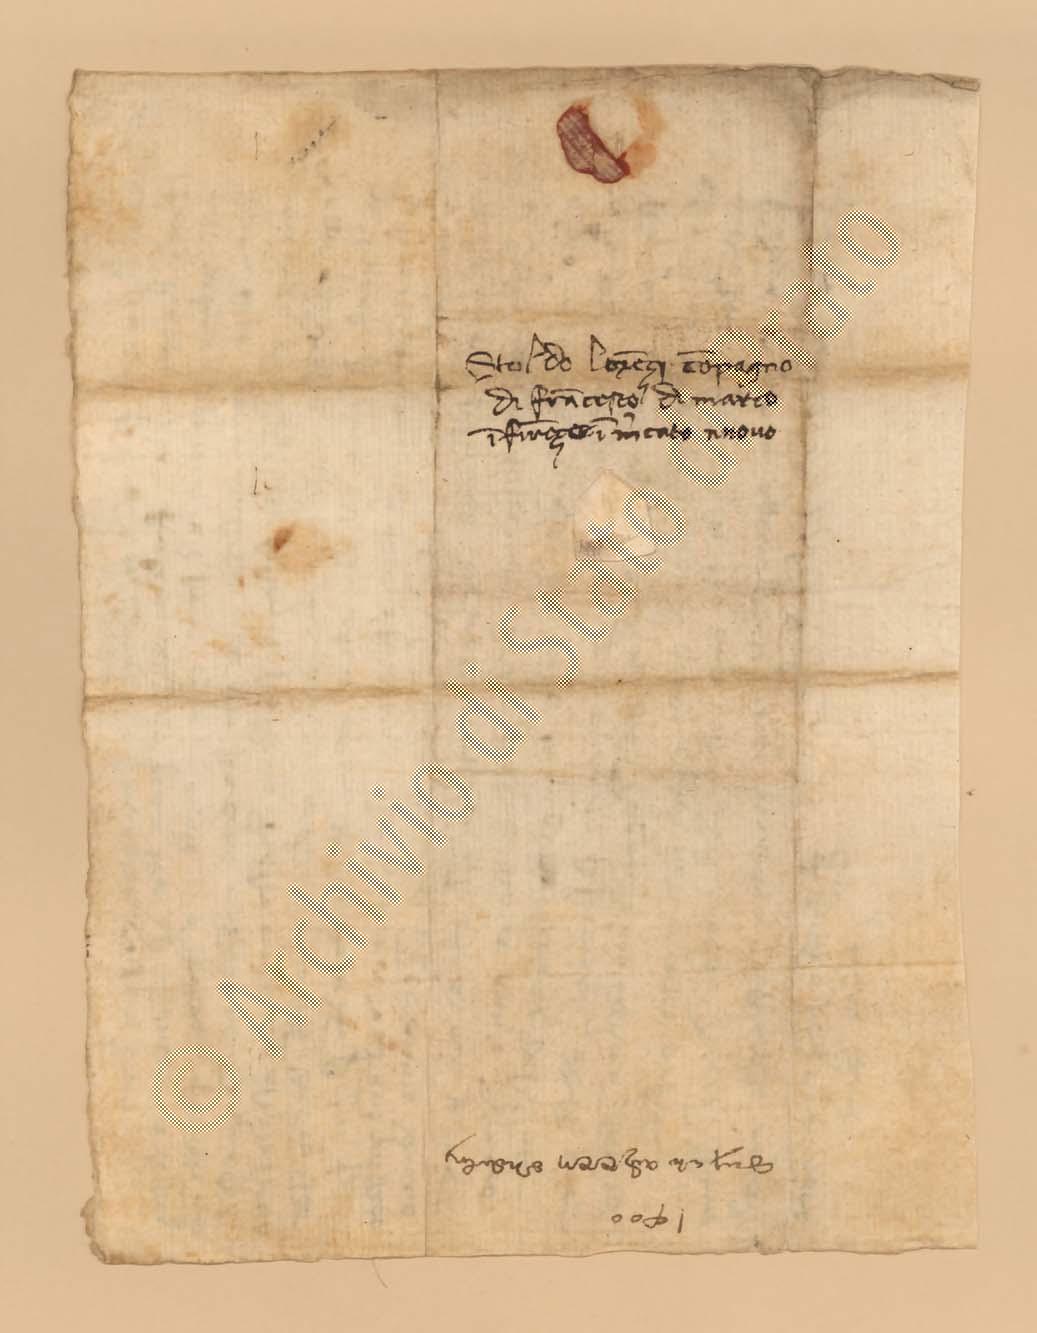 Stoldo lorēzi cōpagno
di frācescho di marco
ī firēze ī mcato nuovo
1400
© Archivio di Stato di Prato